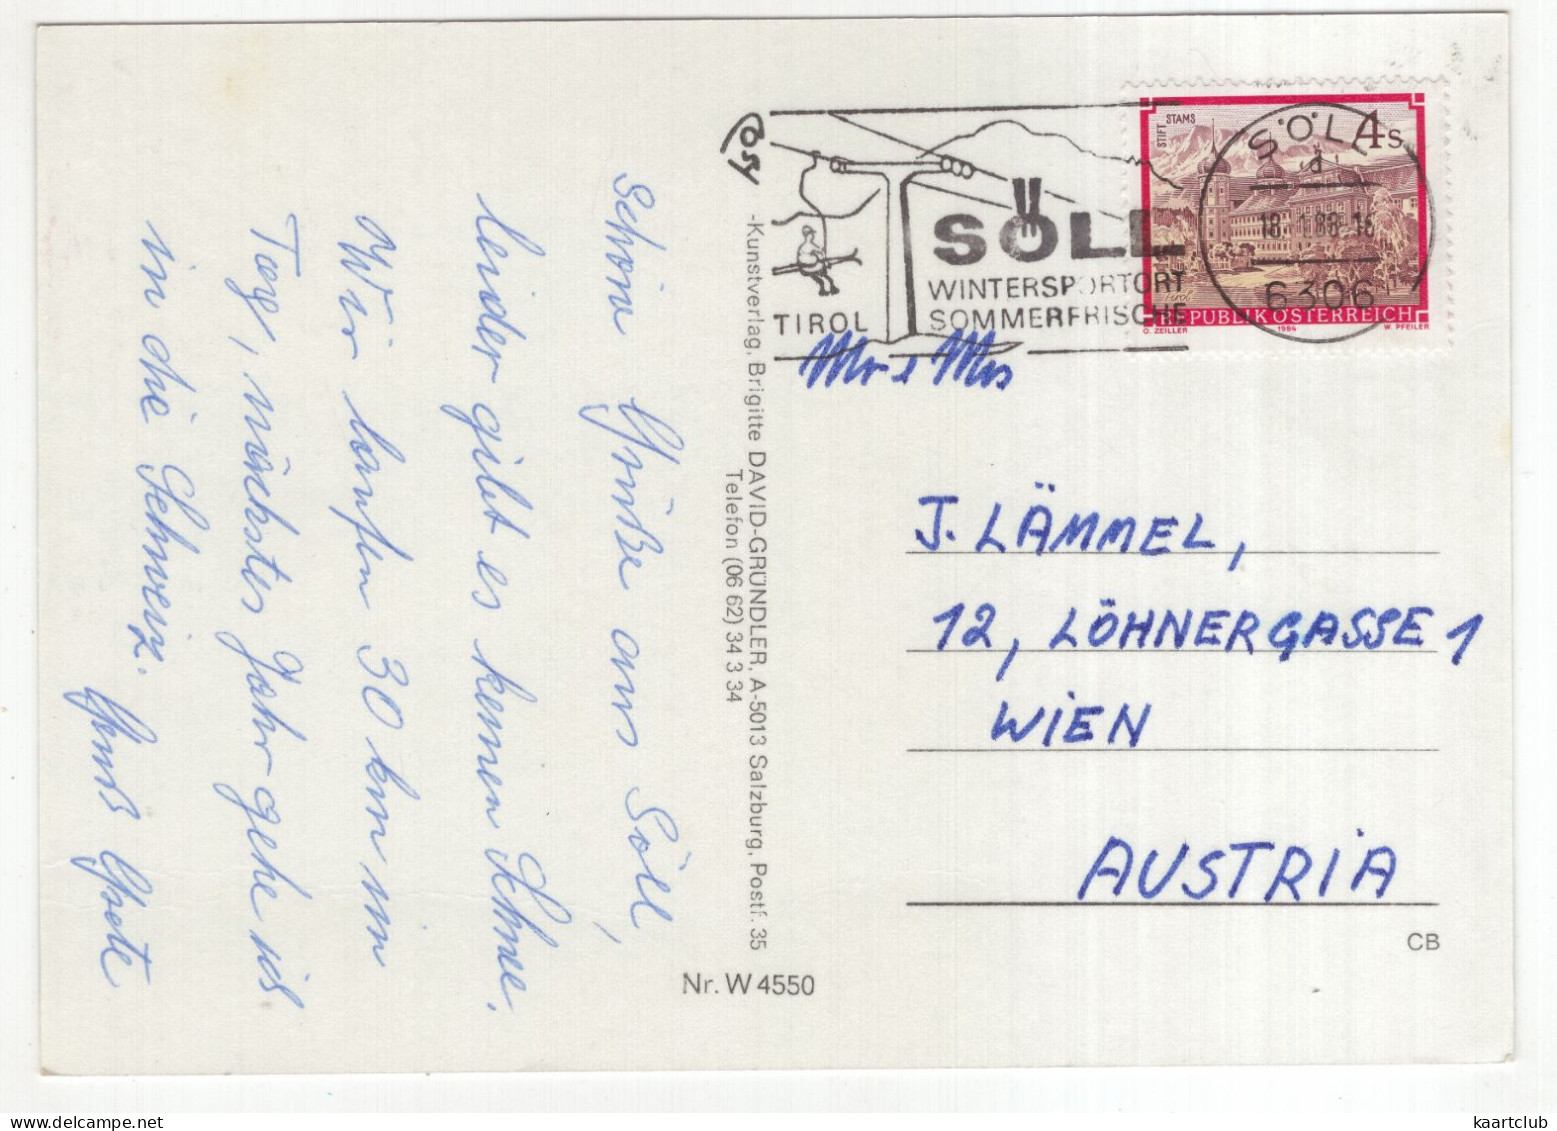 Schöne Grüße aus Söll,
leider gibt es keinen Schnee.
Wir laufen 30 km im
Tag, nächstes Jahr gehe ich
in die Schweiz.
Gruß Grete
-Kunstverlag, Brigitte DAVID-GRÜNDLER, A-5013 Salzburg, Postf. 35
Telefon (06 62) 34 3 34
Nr. W 4550
TIROL
SÖLL
WINTERSPORTORT
SOMMERFRISCHE
STIFT STAMS
4 S
REPUBLIK ÖSTERREICH
O. ZEILLER 1984 W. PFEILER
SÖLL
18.-1.88-16
6306
Mr + Mrs
J. LÄMMEL,
12, LÖHNERGASSE 1
WIEN
AUSTRIA
CB
kaartclub